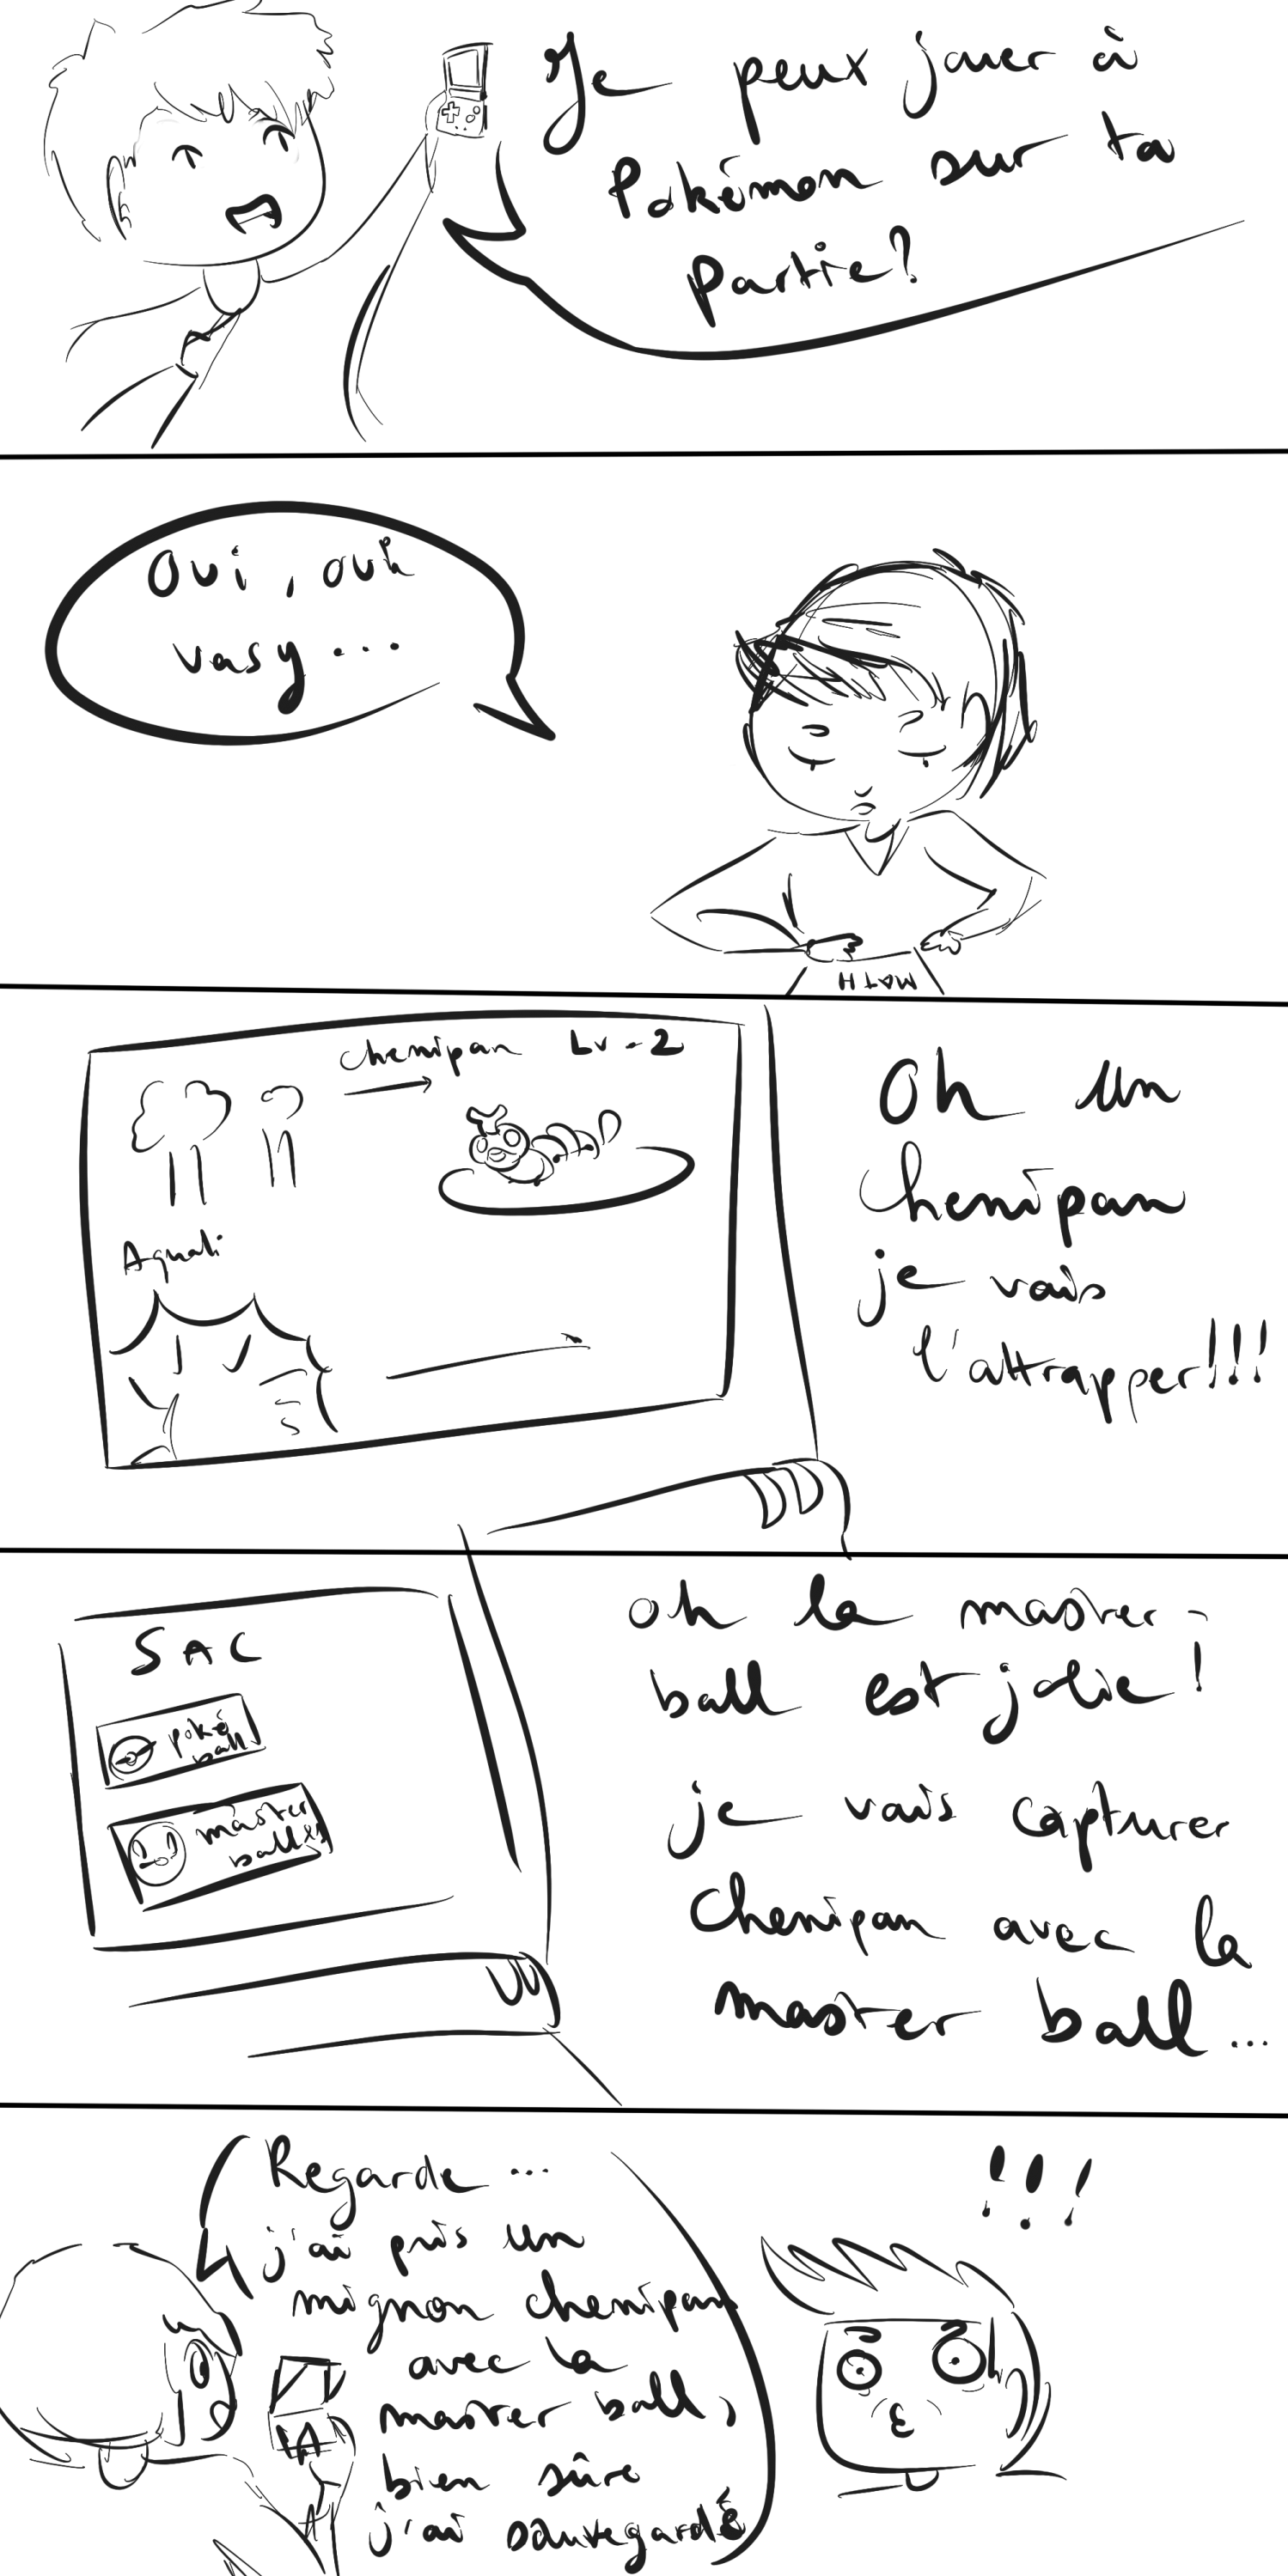 Je peux jouer à
Pokémon sur ta
partie?
Oui, oui
vasy...
MATH
chenipan Lv-2
Aquali
Oh un
chenipan
je vais
l'attrapper!!!
SAC
poké
ball
master
ball x1
oh la master-
ball est jolie!
je vais capturer
Chenipan avec la
master ball...
Regarde...
j'ai pris un
mignon chenipan
avec la
master ball,
bien sûre
j'ai sauvegardé
!!!